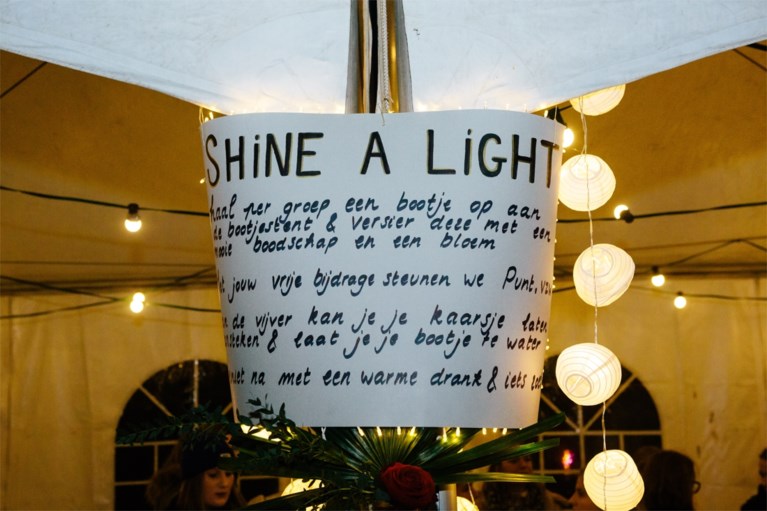 SHiNE A LiGHT
haal per groep een bootje op aan
de bootjestent & versier deze met een
mooie boodschap en een bloem
jouw vrije bijdrage steunen we Punt.vzw
de vijver kan je je kaarsje laten
aansteken & laat je je bootje te water
met een warme drank & iets